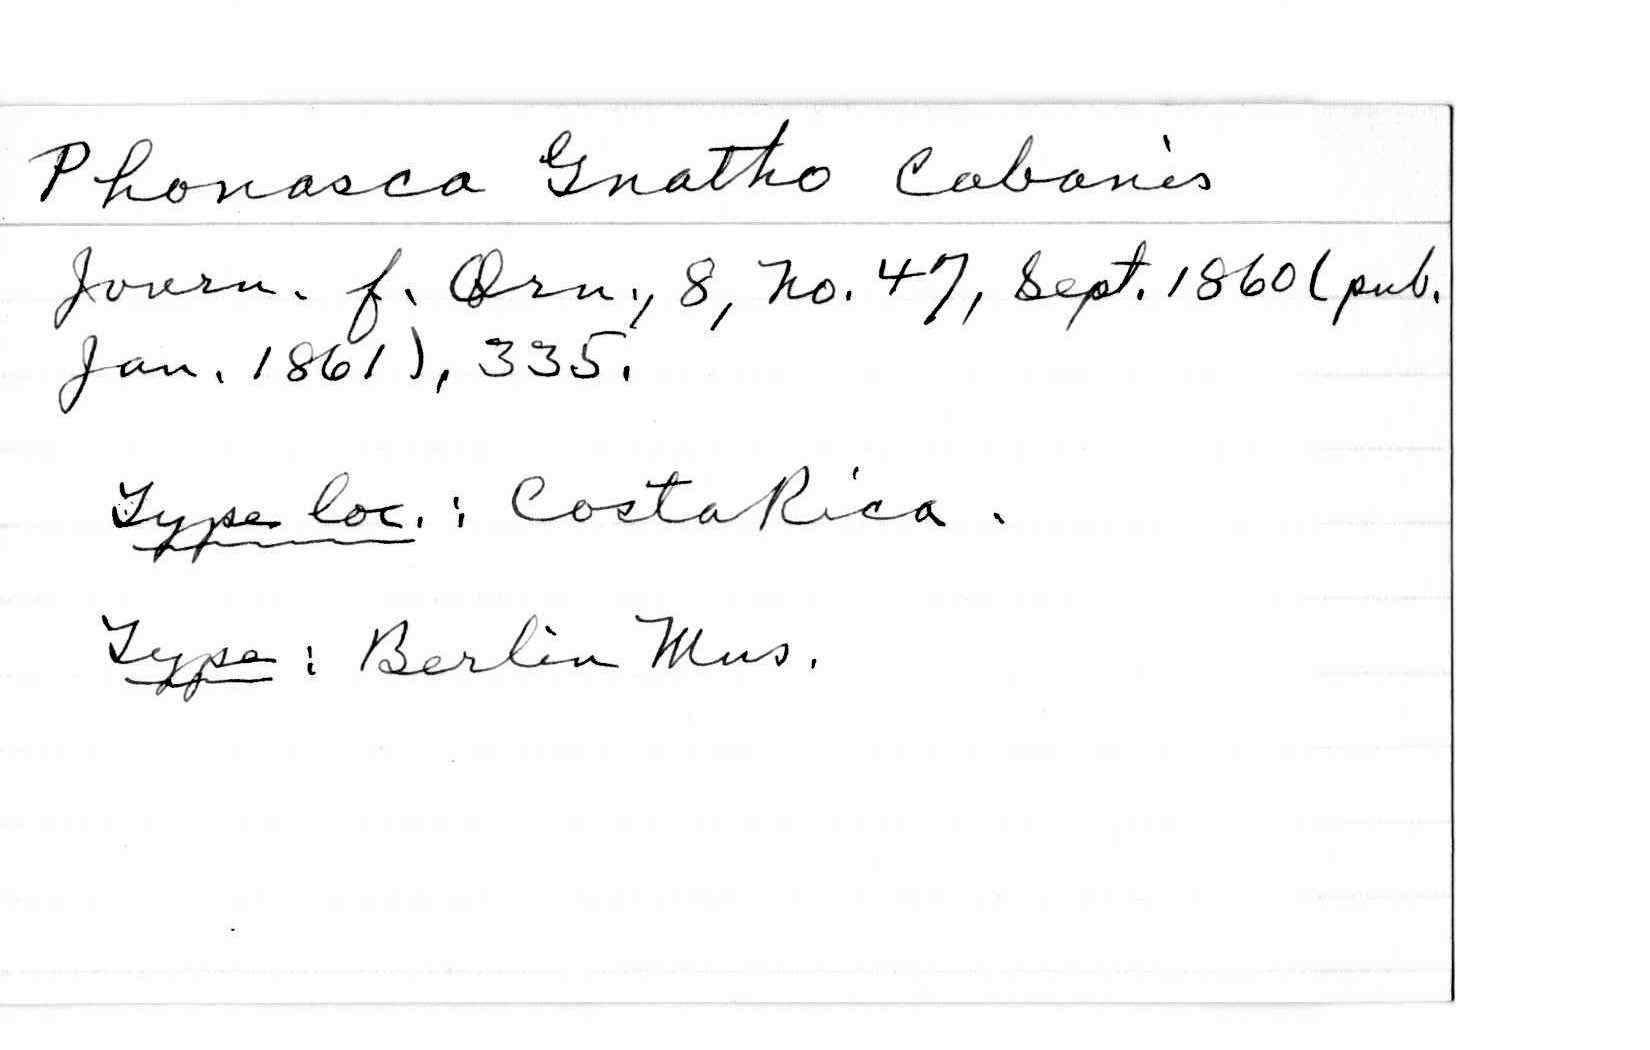 Phonasca Gnatho Cabanis
Journ. f. Orn., 8, No. 47, Sept. 1860 (pub.
Jan. 1861), 335.
Type loc.: Costa Rica.
Type: Berlin Mus.